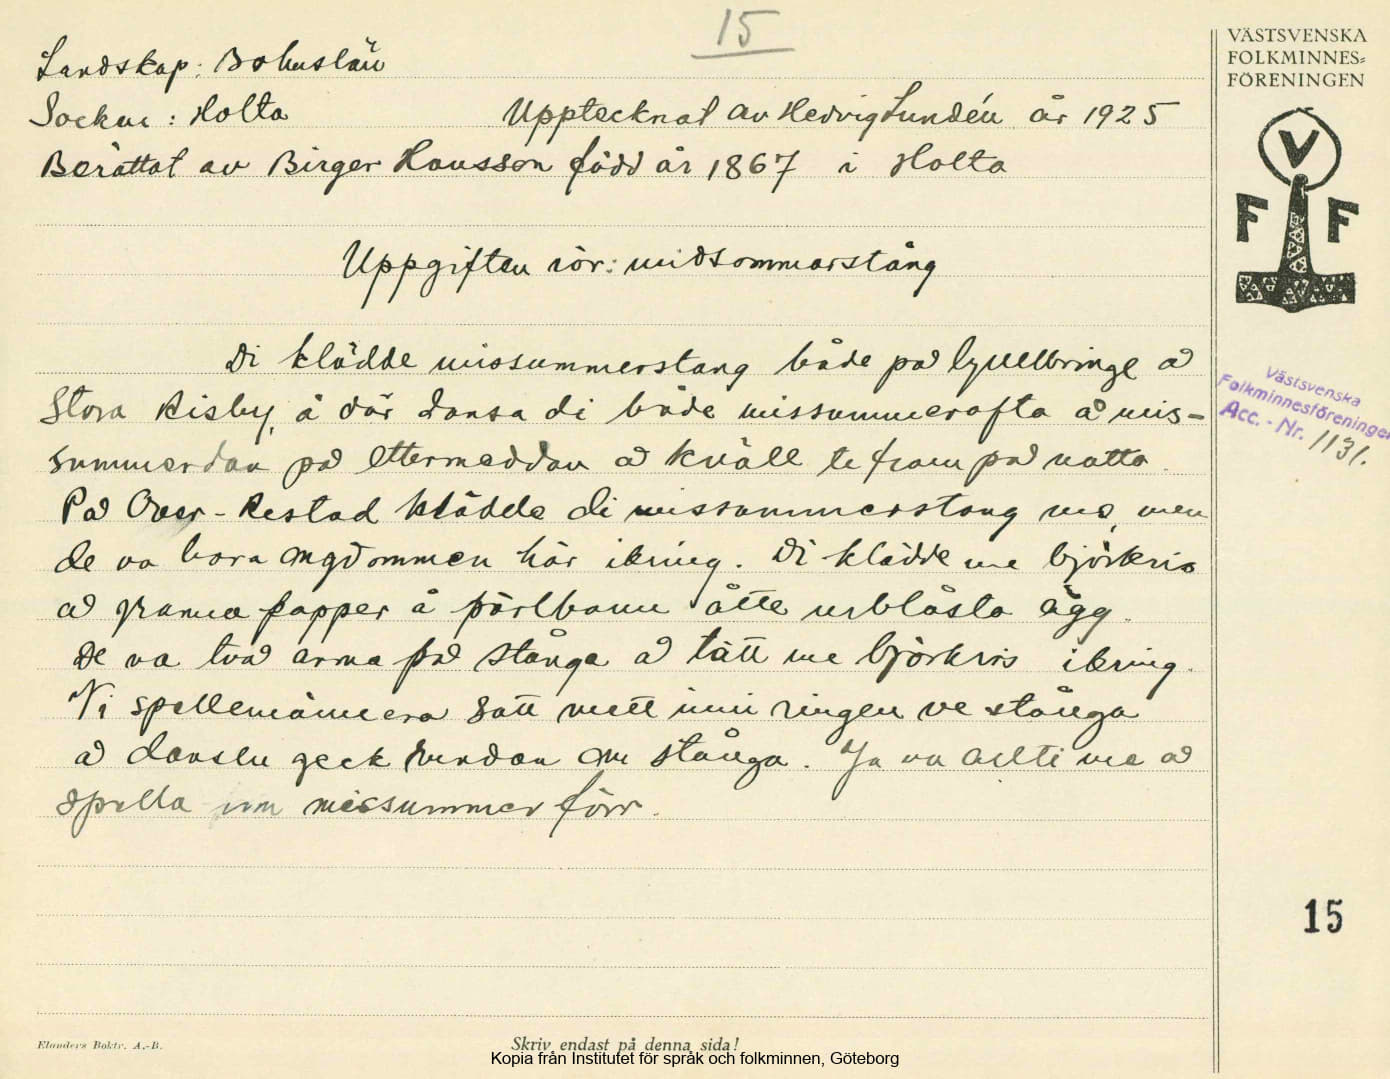 15
VÄSTSVENSKA
FOLKMINNES=
FÖRENINGEN
V
F F
Landskap: Bohuslän
Socken: Holta Upptecknat av Hedvig Lundén år 1925
Berättat av Birger Hansson född år 1867 i Holta
Uppgiften rör: midsommarstång
Di klädde missummerstang både på lyvellbringe å
Stora Risby, å där dansa di både missummerafta å mis-
summerdan på ettermeddan å kväll te fram på natta.
På Över-Restad klädde di missummerstang me, men
de va bara ongdommen här ikring. Di klädde me björkris
å granna papper å pärlbann åtte urblåsta ägg.
De va två arma på stånga å tätt me björkris ikring.
Vi spellemännera satt mett inni ringen ve stånga
å danslu geck rundan om stånga. Ja va allti me å
spella om missummer förr.
Västsvenska
Folkminnesföreningen
Acc. - Nr. 1131.
15
Elanders Boktr. A.-B.
Skriv endast på denna sida!
Kopia från Institutet för språk och folkminnen, Göteborg